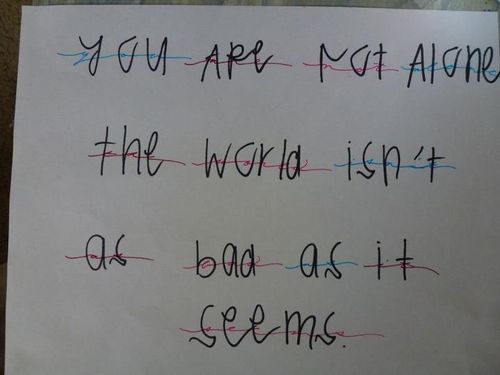 you ARE NOt Alone
the world isn't
as bad as it
seems.